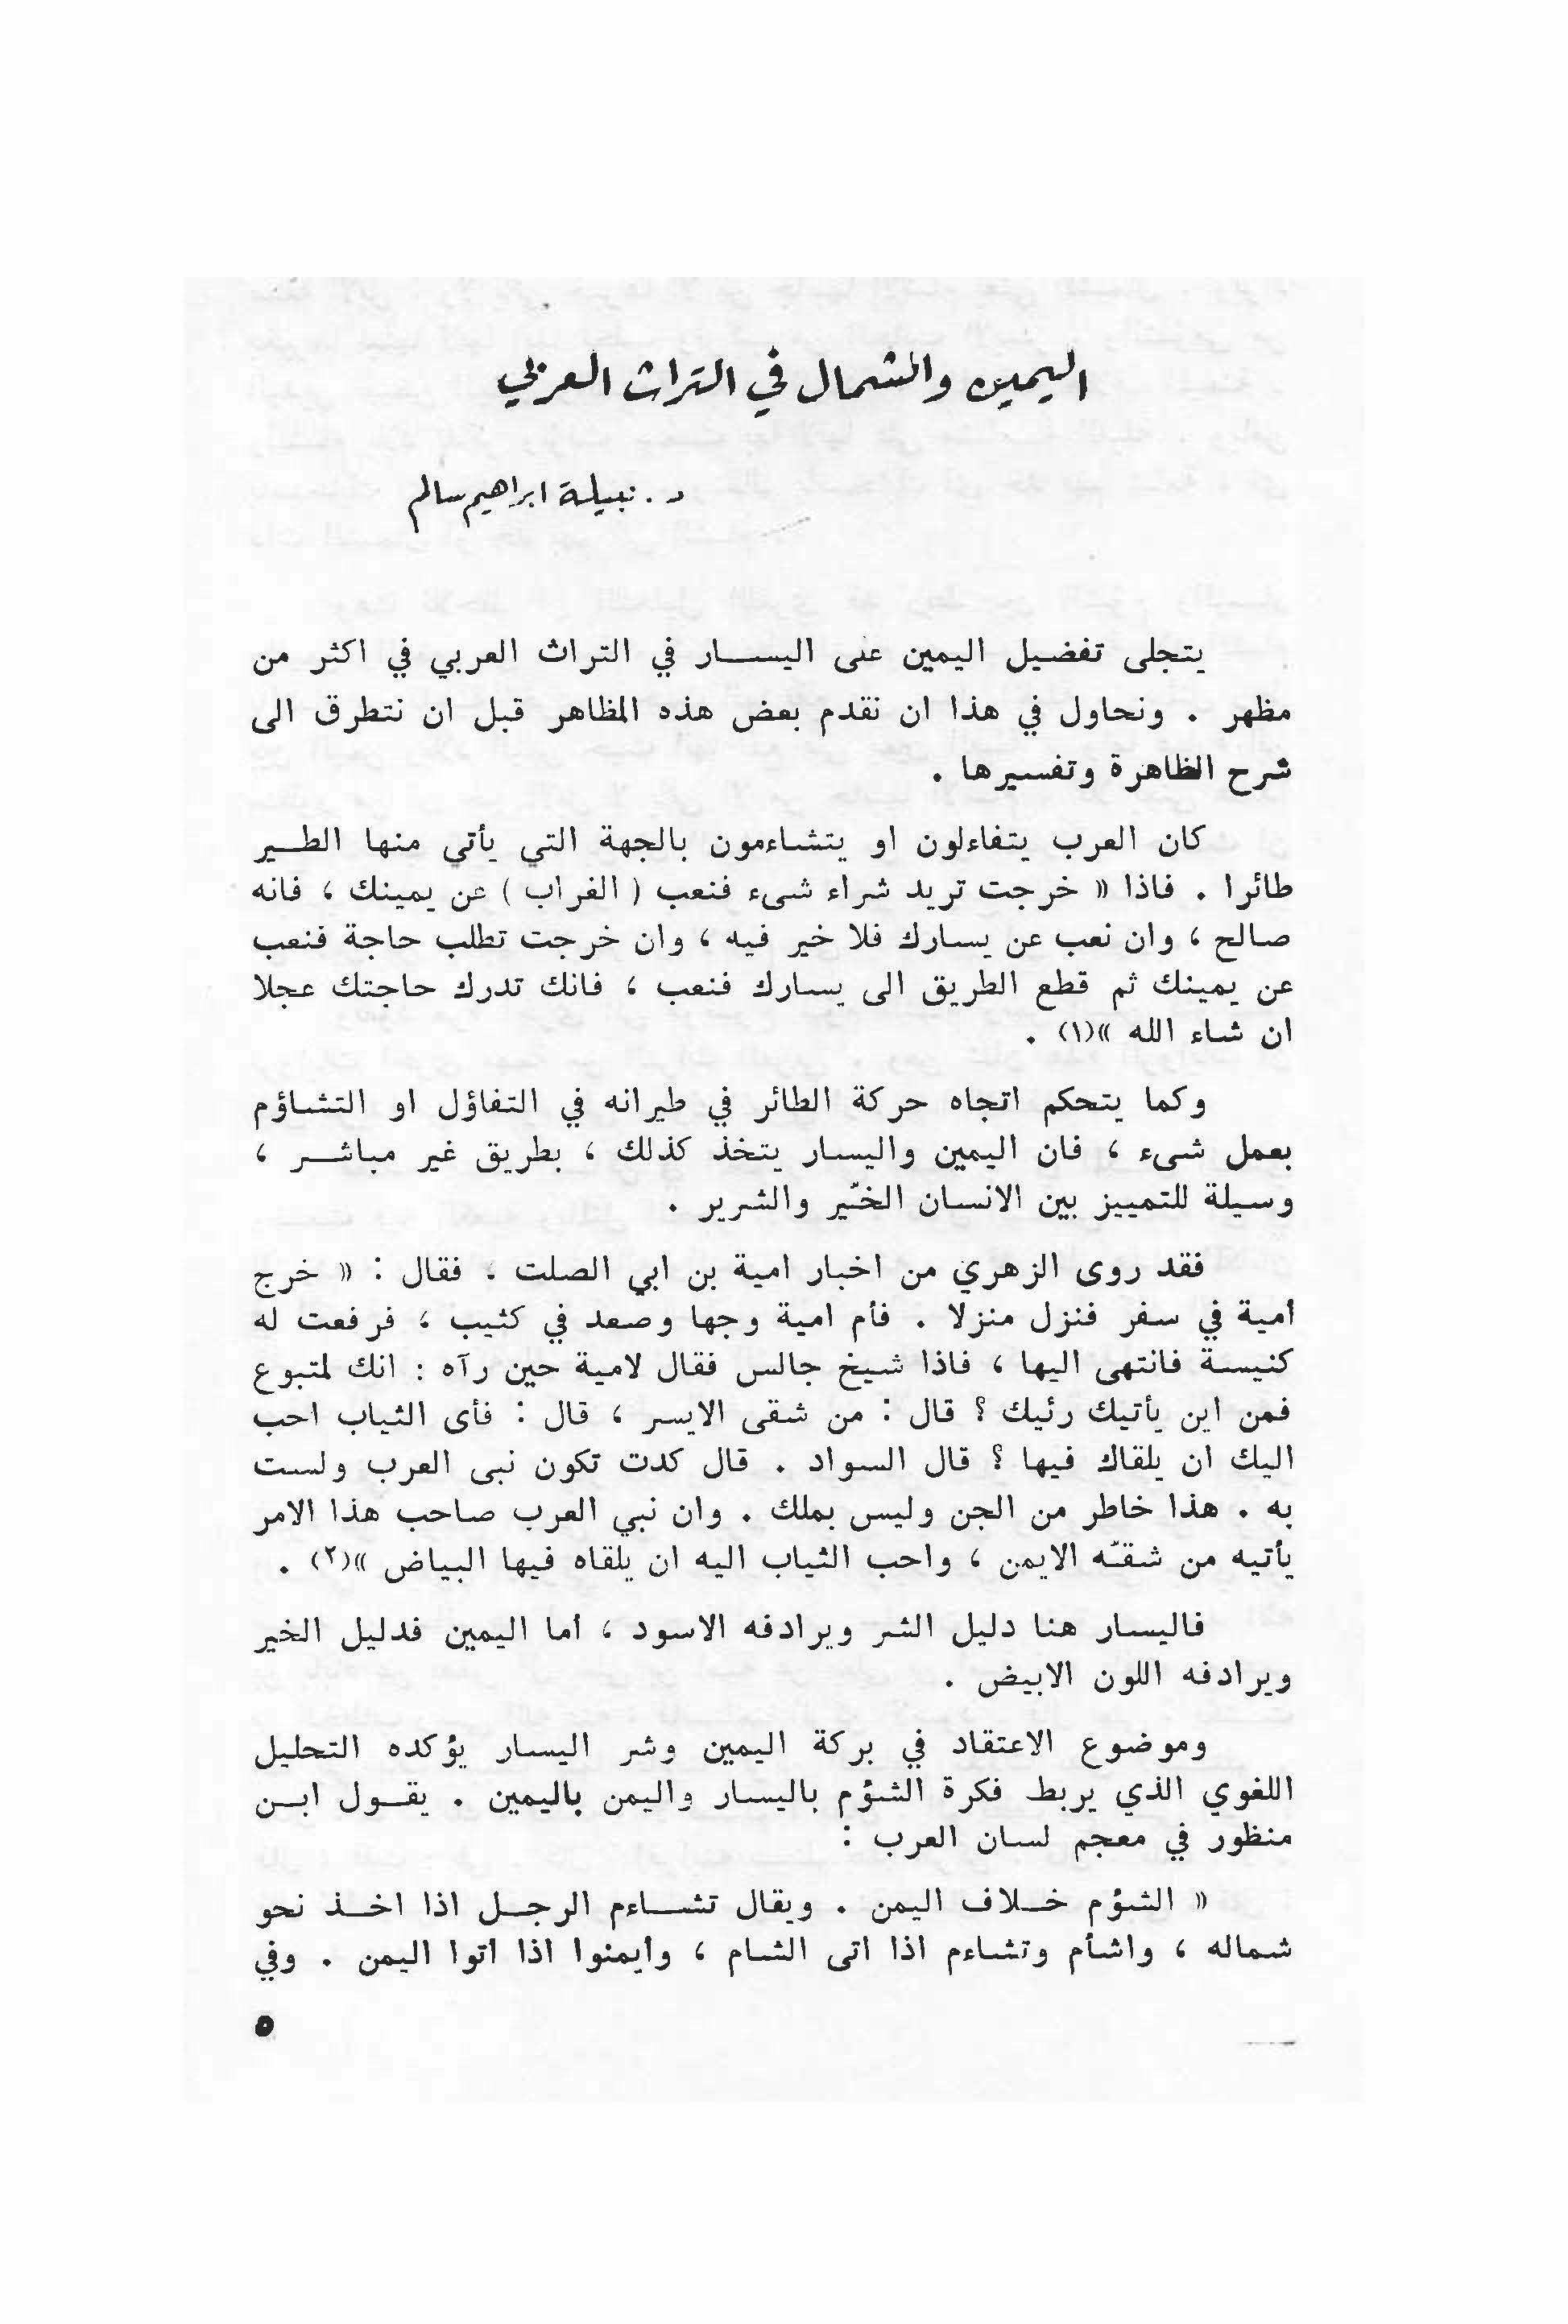 اليمين والشمال في التراث العربي
د. نبيلة ابراهيم سالم
يتجلى تفضيل اليمين على اليســـار في التراث العربي في اكثر من
مظهر . ونحاول في هذا ان نقدم بعض هذه المظاهر قبل ان نتطرق الى
شرح الظاهرة وتفسيرها .
كان العرب يتفاءلون او يتشاءمون بالجهة التي يأتي منها الطــير
طائرا . فاذا « خرجت تريد شراء شىء فنعب ( الغراب ) عن يمينك ، فانه
صالح ، وان نعب عن يسارك فلا خير فيه ، وان خرجت تطلب حاجة فنعب
عن يمينك ثم قطع الطريق الى يسارك فنعب ، فانك تدرك حاجتك عجلا
ان شاء الله »(١) .
وكما يتحكم اتجاه حركة الطائر في طيرانه في التفاؤل او التشاؤم
بعمل شىء ، فان اليمين واليسار يتخذ كذلك ، بطريق غير مباشــر ،
وسيلة للتمييز بين الانسان الخيّر والشرير .
فقد روى الزهري من اخبار امية بن ابي الصلت . فقال : « خرج
أمية في سفر فنزل منزلا . فأم امية وجها وصعد في كثيب ، فرفعت له
كنيسة فانتهى اليها ، فاذا شيخ جالس فقال لامية حين رآه : انك لمتبوع
فمن اين يأتيك رئيك ؟ قال : من شقى الايسر ، قال : فأى الثياب احب
اليك ان يلقاك فيها ؟ قال السواد . قال كدت تكون نبى العرب ولست
به . هذا خاطر من الجن وليس بملك . وان نبي العرب صاحب هذا الامر
يأتيه من شقـّه الايمن ، واحب الثياب اليه ان يلقاه فيها البياض »(٢) .
فاليسار هنا دليل الشر ويرادفه الاسود ، أما اليمين فدليل الخير
ويرادفه اللون الابيض .
وموضوع الاعتقاد في بركة اليمين وشر اليسار يؤكده التحليل
اللغوي الذي يربط فكرة الشؤم باليسار واليمن باليمين . يقــول ابــن
منظور في معجم لسان العرب :
« الشؤم خــلاف اليمن . ويقال تشــاءم الرجــل اذا اخــذ نحو
شماله ، واشأم وتشاءم اذا اتى الشام ، وأيمنوا اذا أتوا اليمن . وفي
٥